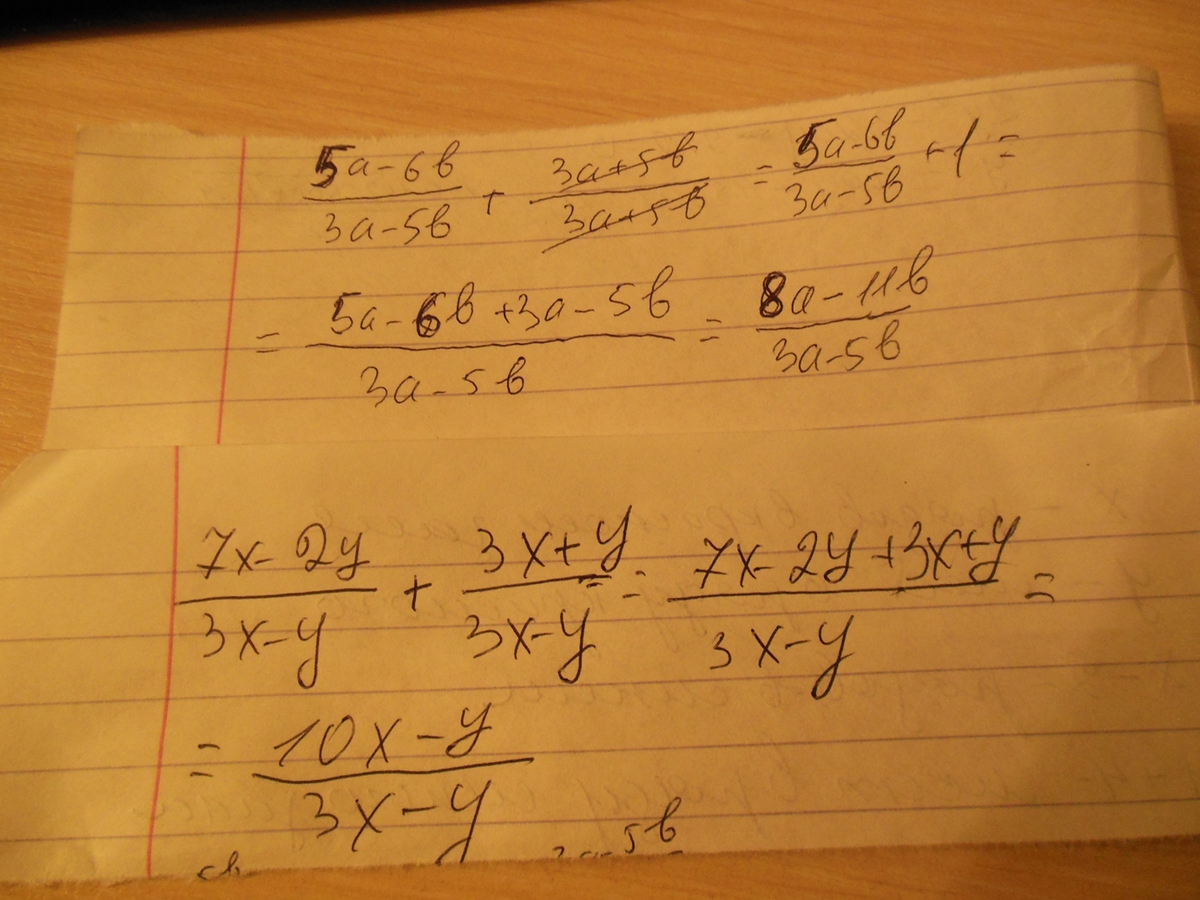 (5a-6b)/(3a-5b) + (3a+5b)/(3a+5b) = (5a-6b)/(3a-5b) + 1 =
= (5a-6b+3a-5b)/(3a-5b) = (8a-11b)/(3a-5b)
(7x-2y)/(3x-y) + (3x+y)/(3x-y) = (7x-2y+3x+y)/(3x-y) =
= (10x-y)/(3x-y)
3a-5b